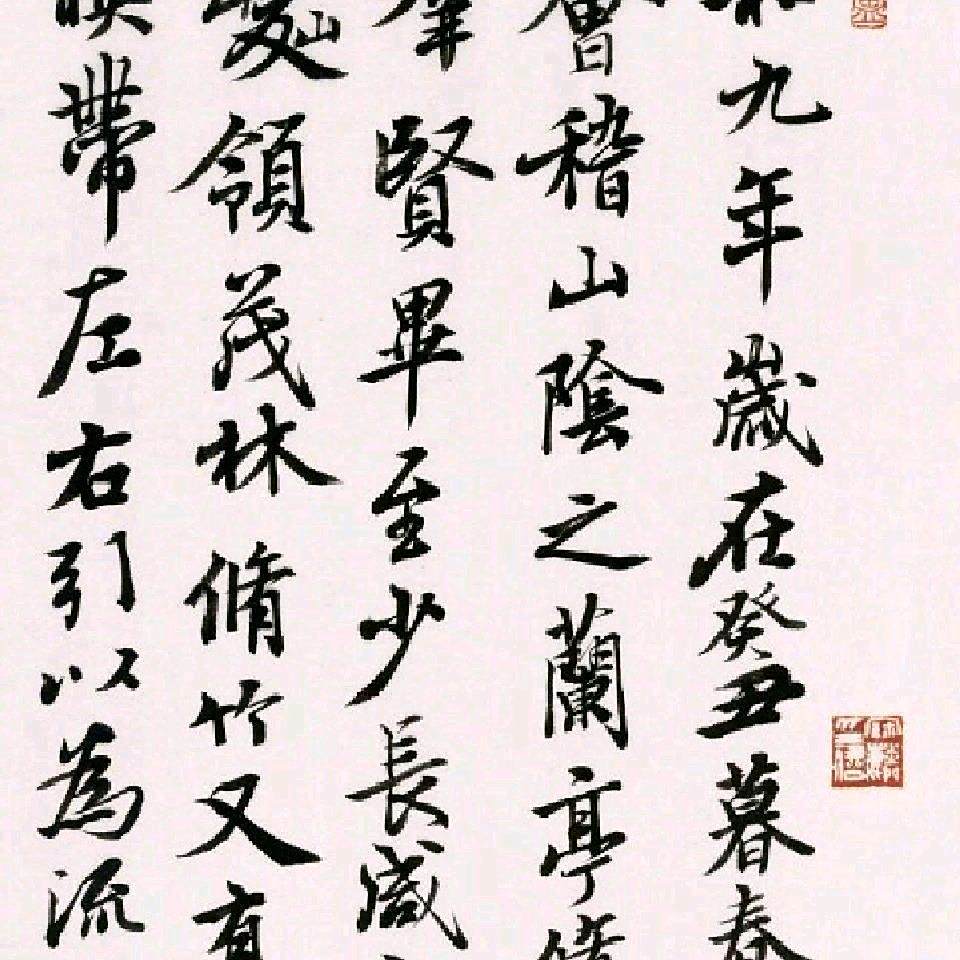 和九年歲在癸丑暮春
會稽山陰之蘭亭脩
羣賢畢至少長咸
峻領茂林脩竹又有
映帶左右引以為流